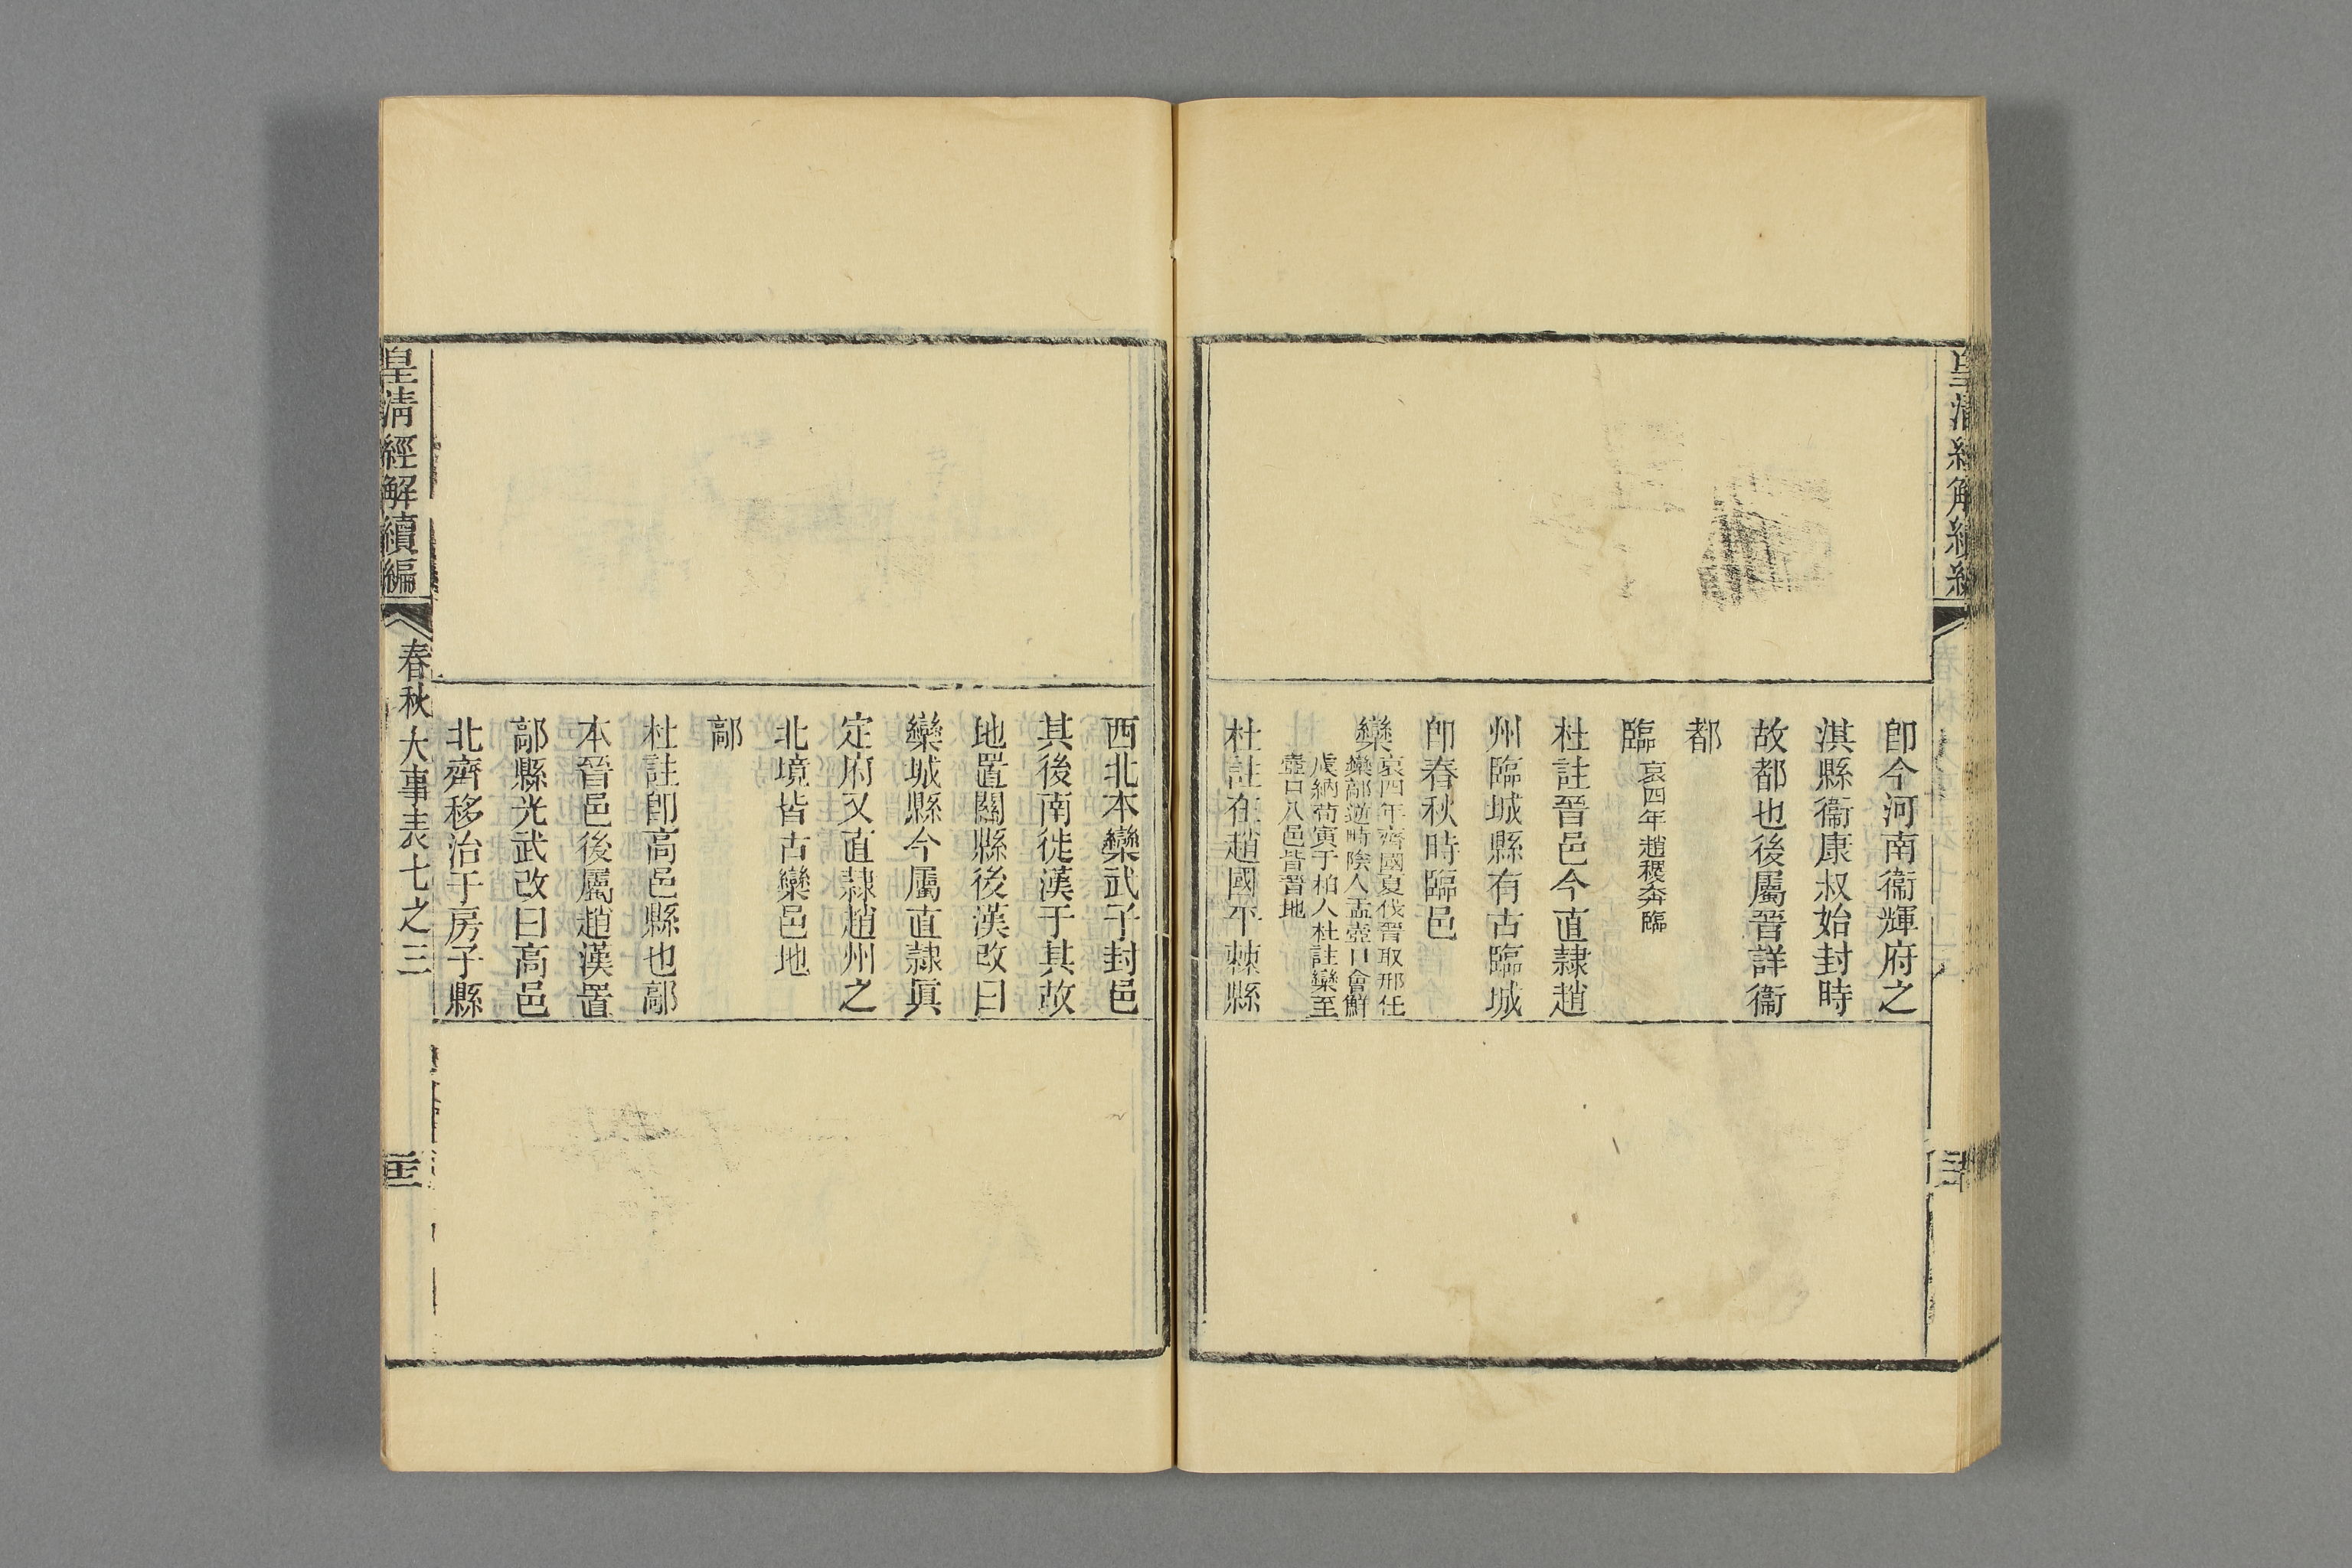 卽今河南衞輝府之
淇縣衞康叔始封時
故都也後屬晉詳衞
都
臨哀四年趙稷奔臨
杜註晉邑今直隷趙
州臨城縣有古臨城
卽春秋時臨邑
欒哀四年齊國夏伐晉取邢任
欒鄗逆畤陰人盂壺口會鮮
虞納荀寅于柏人杜註欒至
壺口八邑皆晉地
杜註在趙國平棘縣
西北本欒武子封邑
其後南徙漢于其故
地置關縣後漢改曰
欒城縣今屬直隷眞
定府又直隷趙州之
北境皆古欒邑地
鄗
杜註卽高邑縣也鄗
本晉邑後屬趙漢置
鄗縣光武改曰高邑
北齊移治于房子縣
皇清經解續編
春秋大事表七之三